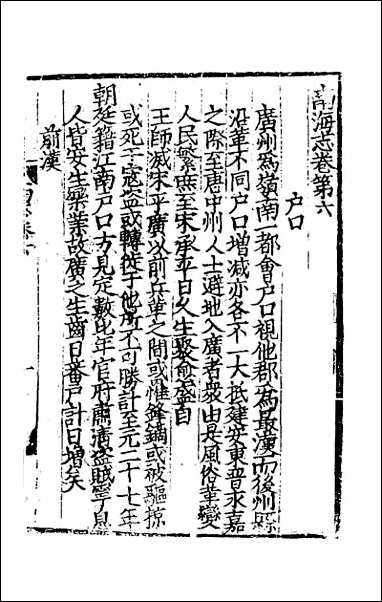 南海志卷第六
户口
廣州爲嶺南一都會户口視他郡爲最漢而後州縣
沿革不同户口增減亦各不一大抵建安東晉永嘉
之際至唐中州人士避地入廣者衆由是風俗革變
人民繁庶至宋承平日久生聚愈盛自
王師滅宋平廣以前兵革之間或罹鋒鏑或被驅掠
或死于寇盗或轉徙于他所不可勝計至元二十七年
朝廷籍江南户口方見定數比年官府肅清盗賊寧息
人皆安生樂業故廣之生齒日蕃户計日增矣
前漢